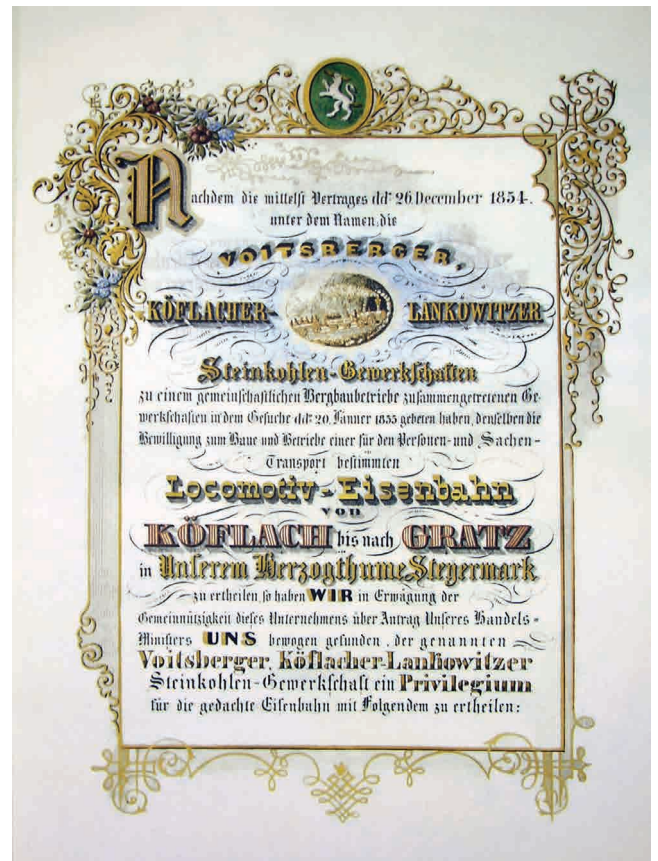 Nachdem die mittelst Vertrages ddt° 26 December 1854.
unter dem Namen, die
VOITSBERGER,
KÖFLACHER- LANKOWITZER
Steinkohlen-Gewerkschaften
zu einem gemeinschaftlichen Bergbaubetriebe zusammengetretenen Ge-
werkschaften in dem Gesuche ddt° 20. Jänner 1855 gebeten haben, denselben die
Bewilligung zum Baue und Betriebe einer für den Personen- und Sachen-
Transport bestimmten
Locomotiv-Eisenbahn
von
KÖFLACH bis nach GRATZ
in Unserem Herzogthume Steyermark
zu ertheilen so haben WIR in Erwägung der
Gemeinnützigkeit dieses Unternehmens über Antrag Unseres Handels-
Ministers UNS bewogen gefunden, der genannten
Voitsberger, Köflacher-Lankowitzer
Steinkohlen-Gewerkschaft ein Privilegium
für die gedachte Eisenbahn mit Folgendem zu ertheilen: